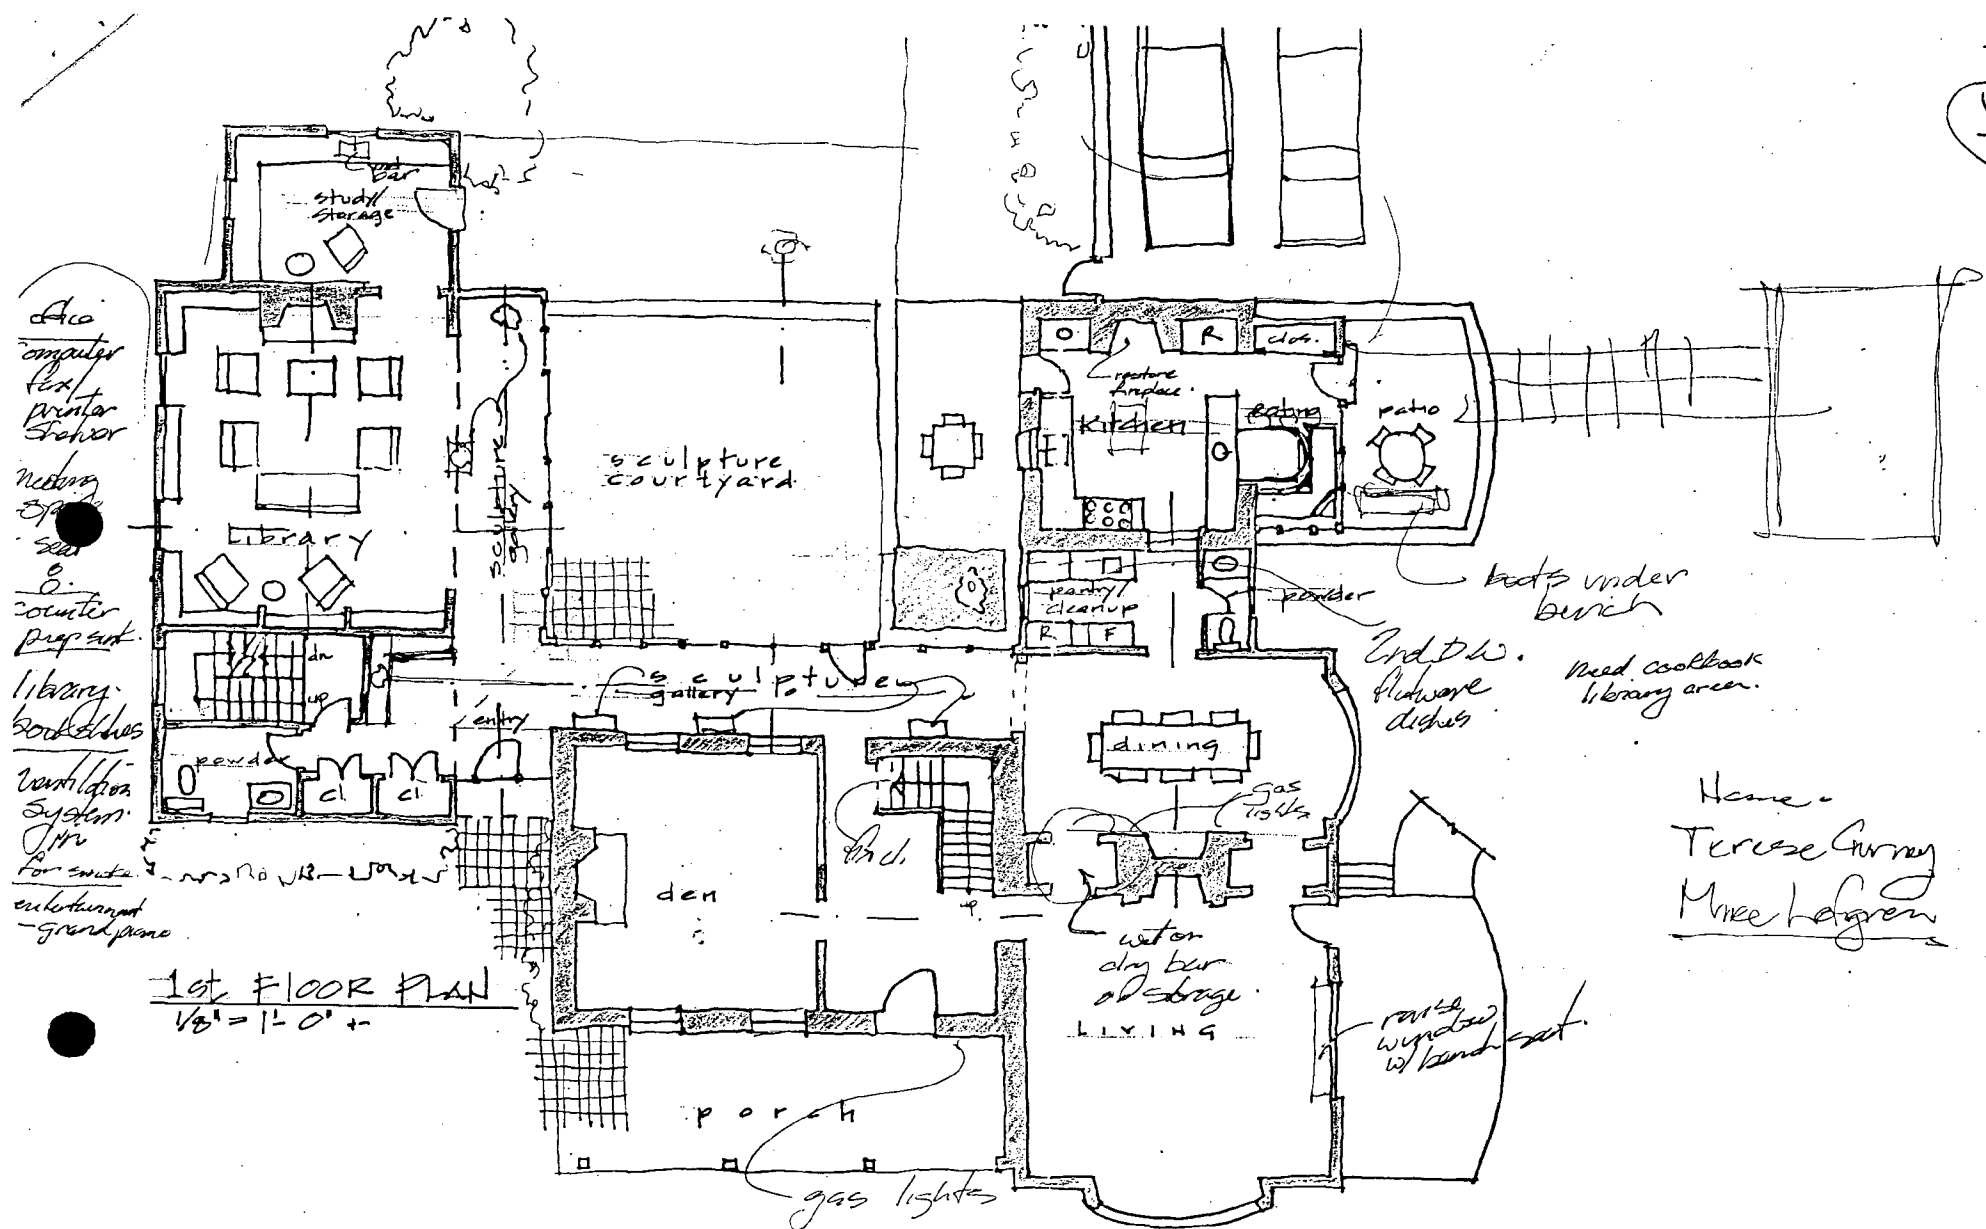 wet
bar
study/
storage
office
computer
fax/
printer
meeting
seat
8.
counter
prep sink.
library.
bookshelves
ventilation
system.
for smoke
entertainment
- grand piano
Library
sculpture
gallery
sculpture
courtyard
dn
up
powder
cl.
cl.
entry
sculpture
gallery
R
clos.
restore
fireplace.
Kitchen
eating
patio
pantry/
cleanup
R
F
powder
boots under
bench
2nd D.W.
flatware
dishes
need cookbook
library area.
dining
gas
lights
den
up
wet or
dry bar
or storage.
LIVING
raise
window
w/ bench seat.
porch
gas lights
1st FLOOR PLAN
1/8" = 1'-0" +-
Home -
Terese Gurney
Mike Lofgren